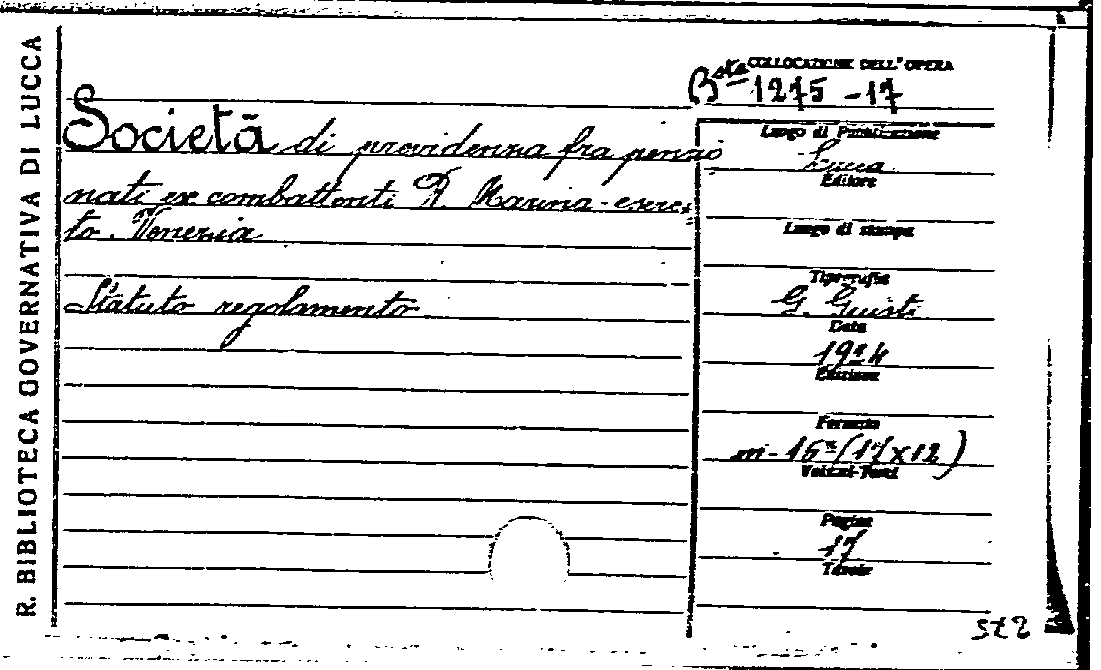 R. BIBLIOTECA GOVERNATIVA DI LUCCA
COLLOCAZIONE DELL'OPERA
Bsta 1275-17
Società di providenza fra pensio
nati ex combattenti R. Marina-eserci
to. Venezia
Statuto regolamento
Luogo di Pubblicazione
Lucca
Editore
Luogo di stampa
Tipografia
G. Giusti
Data
Edizione
Formato
in-16º (17x12)
Volumi-Tomi
Pagine
17
Tavole